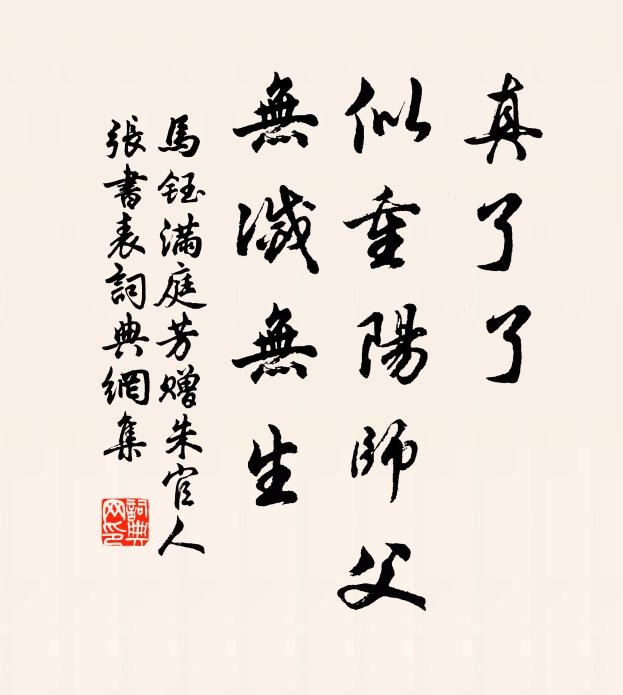 真了了
似重陽師父
無滅無生
馬鈺滿庭芳贈朱官人
張書表詞典網集
詞典网印